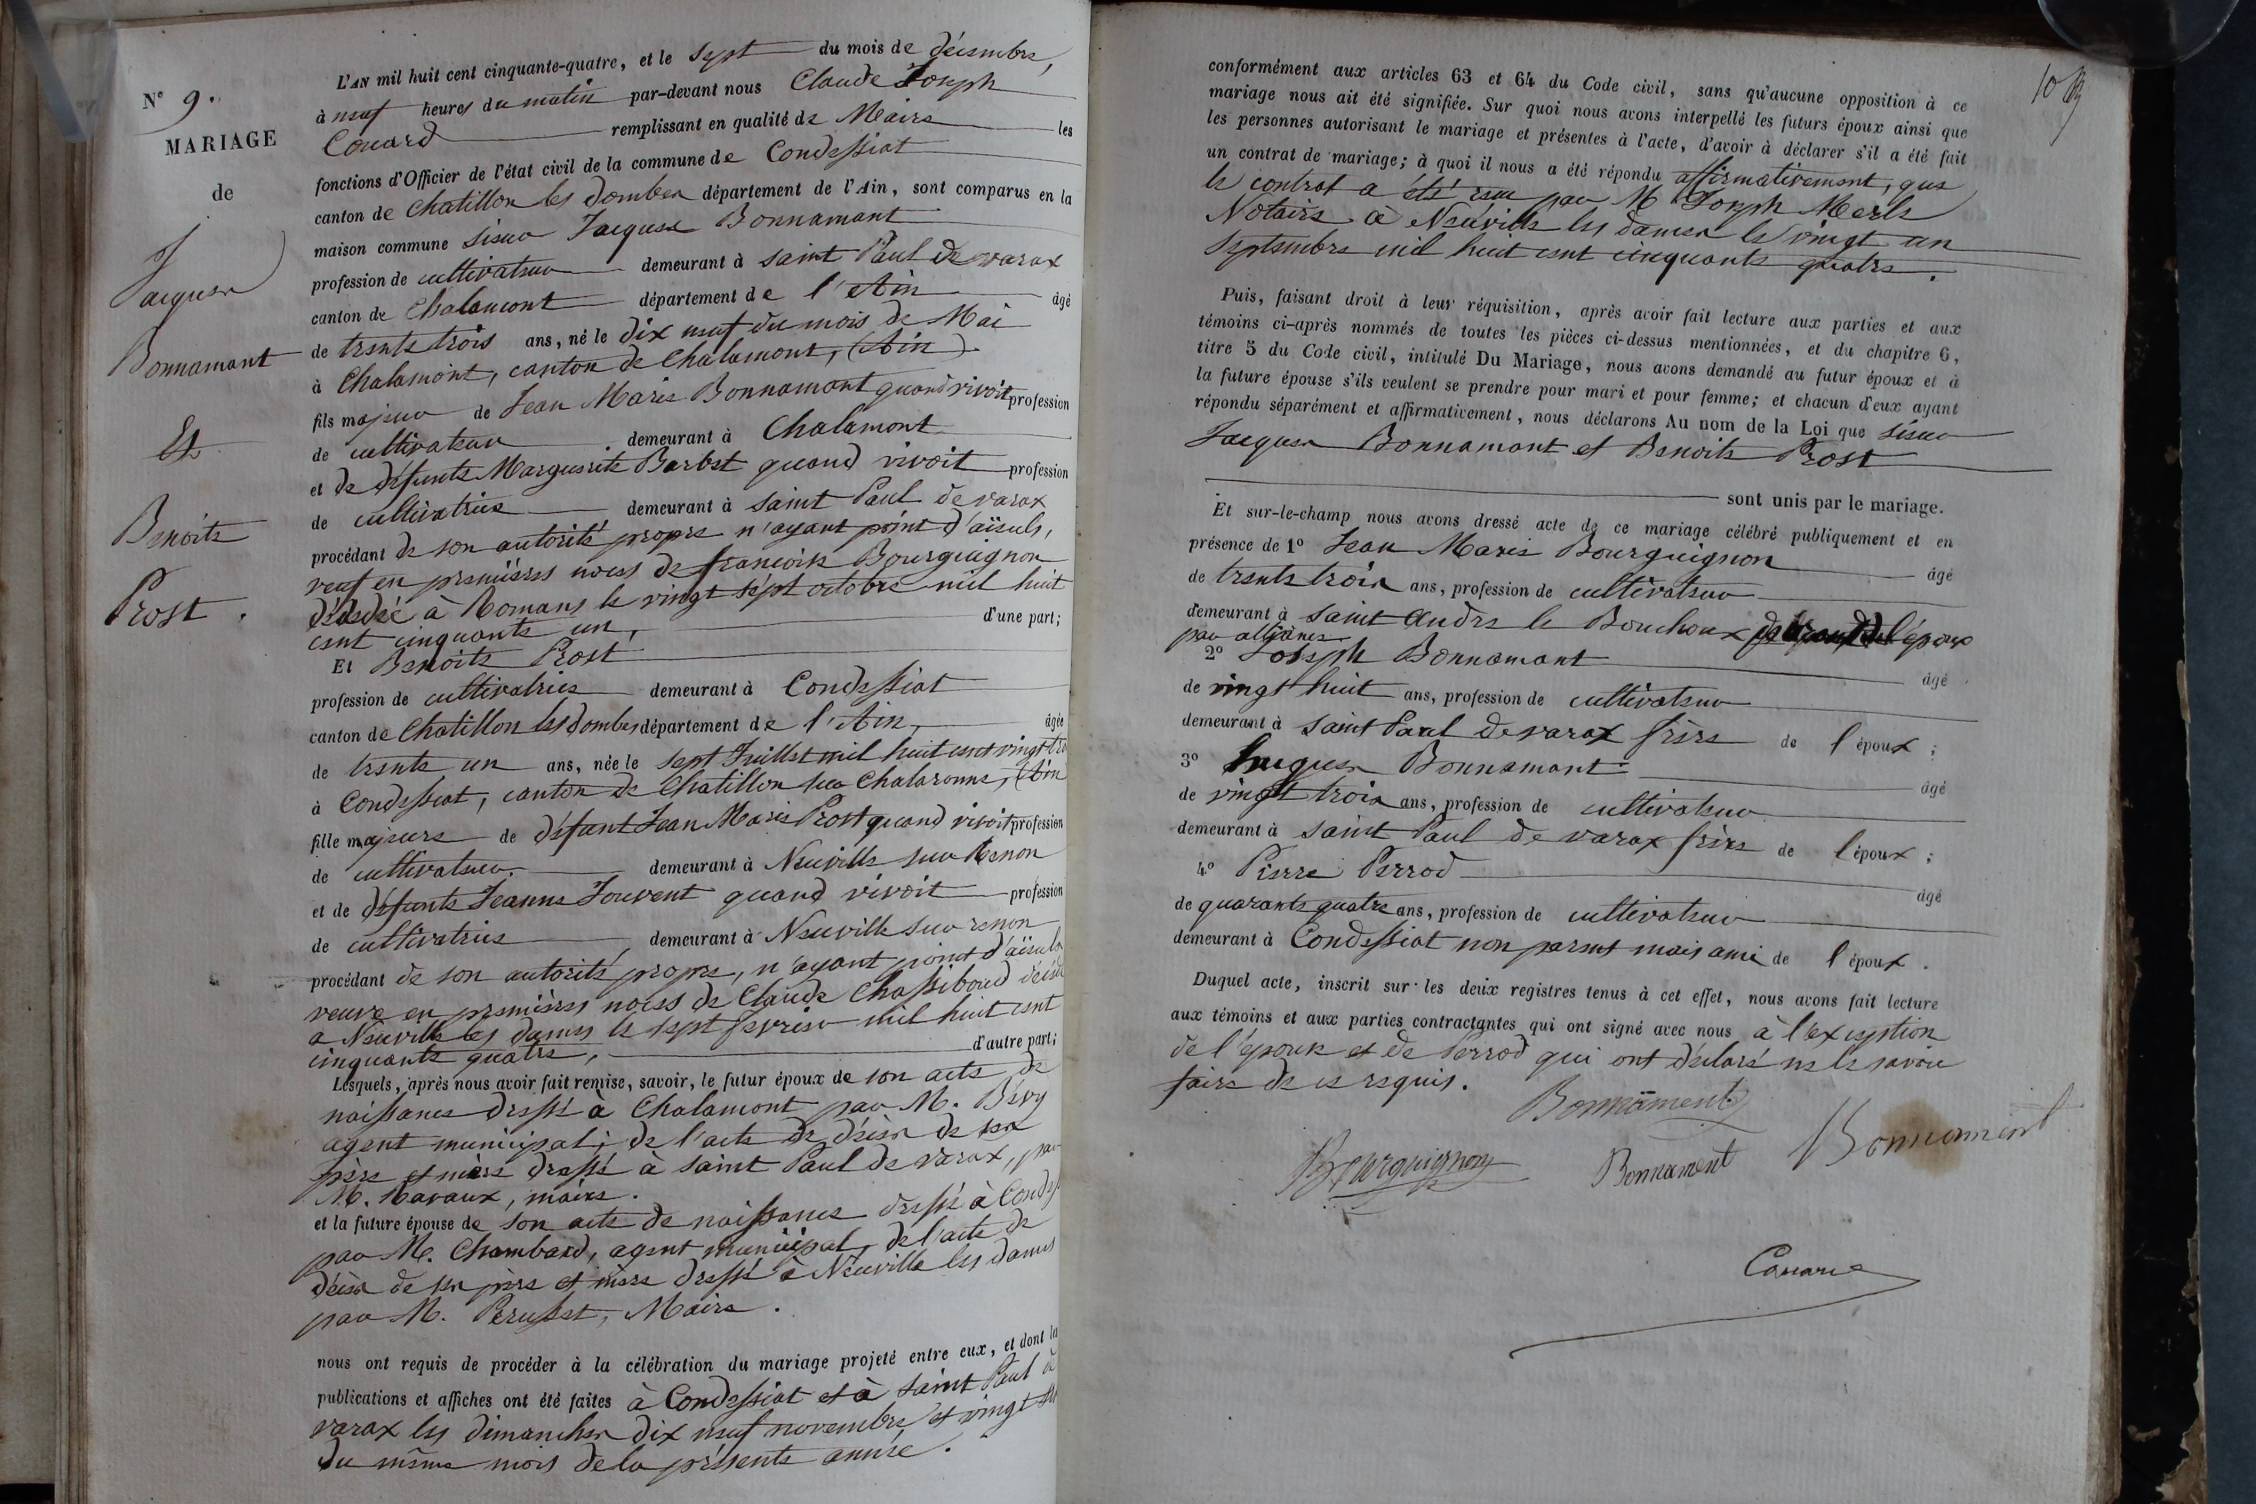 N° 9.
MARIAGE
de
Jacques
Bonnamant
Et
Benoite
Prost.
L'AN mil huit cent cinquante-quatre, et le sept du mois de décembre,
à neuf heures du matin par-devant nous Claude Joseph
Couard remplissant en qualité de Maire les
fonctions d'Officier de l'état civil de la commune de Condeissiat
canton de Chatillon les Dombes département de l'Ain, sont comparus en la
maison commune sieur Jacques Bonnamant
profession de cultivateur demeurant à saint Paul de varax
canton de Chalamont département de l'Ain âgé
de trente trois ans, né le dix neuf du mois de Mai
à Chalamont, canton de Chalamont, (Ain)
fils majeur de Jean Marie Bonnamant quand vivoit profession
de cultivateur demeurant à Chalamont
et de défunte Marguerite Barbet quand vivoit profession
de cultivatrice demeurant à saint Paul de varax
procédant de son autorité propre n'ayant point d'aïeuls,
veuf en premières noces de françoise Bourguignon
décédée à Romans le vingt sept octobre mil huit
cent cinquante un, d'une part;
Et Benoite Prost
profession de cultivatrice demeurant à Condeissiat
canton de Chatillon les Dombes département de l'Ain, âgée
de trente un ans, née le sept Juillet mil huit cent vingt tro
à Condeissiat, canton de Chatillon sur Chalaronne, (Ain
fille majeure de défunt Jean Marie Prost quand vivoit profession
de cultivateur demeurant à Neuville sur Renon
et de défunte Jeanne Jouvent quand vivoit profession
de cultivatrice demeurant à Neuville sur renon
procédant de son autorité propre, n'ayant point d'aïeuls
veuve en premières noces de Claude Chassiboud décédé
a Neuville les dames le sept fevrier mil huit cent
cinquante quatre, d'autre part;
Lesquels, après nous avoir fait remise, savoir, le futur époux de son acte de
naissance dressé à Chalamont par M. Béry
agent municipal; de l'acte de décès de ses
père et mère dressé à saint Paul de varax, par
M. Ravaux, maire.
et la future épouse de son acte de naissance dressé à Condess
par M. Chambard, agent municipal, de l'acte de
décès de ses père et mère dressé à Neuville les dames
par M. Perusset, Maire.
nous ont requis de procéder à la célébration du mariage projeté entre eux, et dont la
publications et affiches ont été faites à Condeissiat et à saint Paul de
varax les dimanches dix neuf novembre et vingt six
du même mois de la présente année.
10
conformément aux articles 63 et 64 du Code civil, sans qu'aucune opposition à ce
mariage nous ait été signifiée. Sur quoi nous avons interpellé les futurs époux ainsi que
les personnes autorisant le mariage et présentes à l'acte, d'avoir à déclarer s'il a été fait
un contrat de mariage; à quoi il nous a été répondu affirmativement, que
le contrat a été reçu par M Joseph Merle
Notaire à Neuville les dames le vingt un
Septembre mil huit cent cinquante quatre.
Puis, faisant droit à leur réquisition, après avoir fait lecture aux parties et aux
témoins ci-après nommés de toutes les pièces ci-dessus mentionnées, et du chapitre 6,
titre 5 du Code civil, intitulé Du Mariage, nous avons demandé au futur époux et à
la future épouse s'ils veulent se prendre pour mari et pour femme; et chacun d'eux ayant
répondu séparément et affirmativement, nous déclarons Au nom de la Loi que sieur
Jacques Bonnamant et Benoite Prost
sont unis par le mariage.
Et sur-le-champ nous avons dressé acte de ce mariage célébré publiquement et en
présence de 1° Jean Marie Bourguignon âgé
de trente trois ans, profession de cultivateur
demeurant à saint Andre le Bouchoux l'époux
par alliance
2° Joseph Bonnamant âgé
de vingt huit ans, profession de cultivateur
demeurant à saint Paul de varax frère de l'époux;
3° Bonnamant âgé
de vingt trois ans, profession de cultivateur
demeurant à saint Paul de varax frère de l'époux;
4° Pierre Perrod âgé
de quarante quatre ans, profession de cultivateur
demeurant à Condeissiat non parent mais ami de l'époux.
Duquel acte, inscrit sur les deux registres tenus à cet effet, nous avons fait lecture
aux témoins et aux parties contractantes qui ont signé avec nous à l'exception
de l'épouse et de Perrod qui ont déclaré ne le savoir
faire de ce requis.
Bonnament
Bourguignon Bonnament Bonnament
Couard